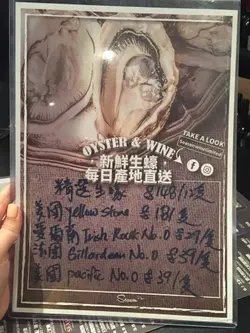 TAKE A LOOK
OYSTER & WINE
新鮮生蠔
每日產地直送
精選生蠔 $148/12隻
美國 Yellow Stone $18/隻
愛爾蘭 Irish Rock No.0 $29/隻
法國 Gillardeau No.0 $39/隻
美國 pacific No.0 $39/隻